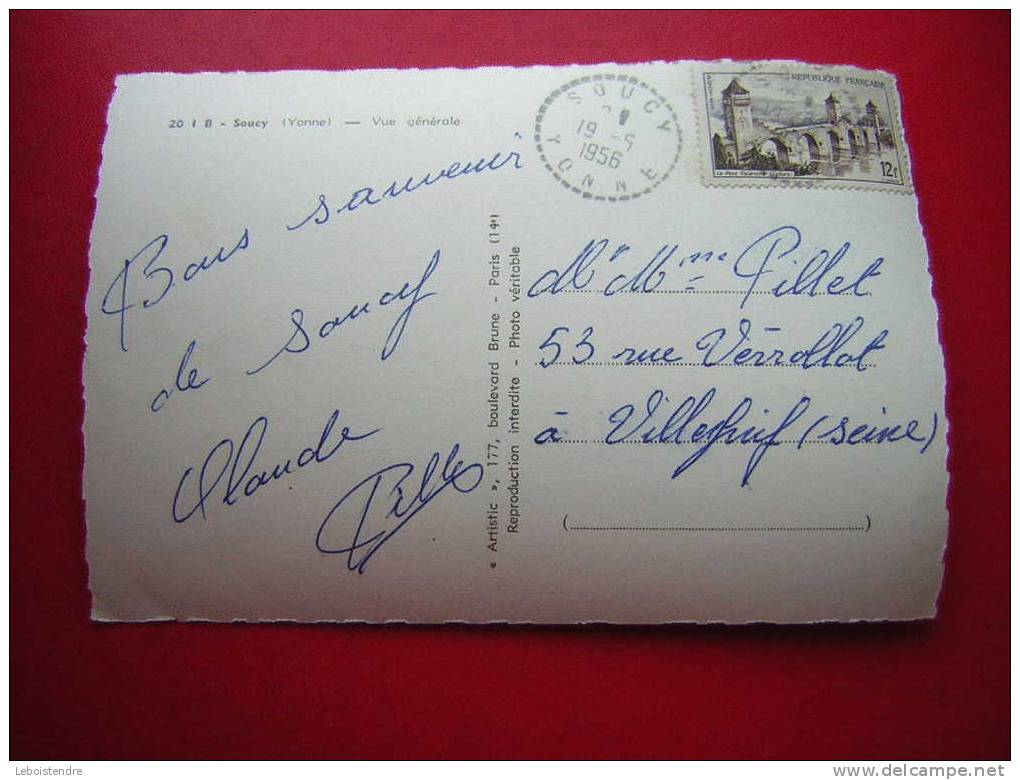 20 I B - Soucy (Yonne) — Vue générale
Bons souvenir
de Soucy
Claude
« Artistic », 177, boulevard Brune - Paris (14e)
Reproduction interdite - Photo véritable
SOUCY
19 -5
1956
YONNE
REPUBLIQUE FRANÇAISE
12f
Mr Mme Pillet
53 rue Verrollot
à Villejuif (seine)
Leboistendre
www.delcampe.net